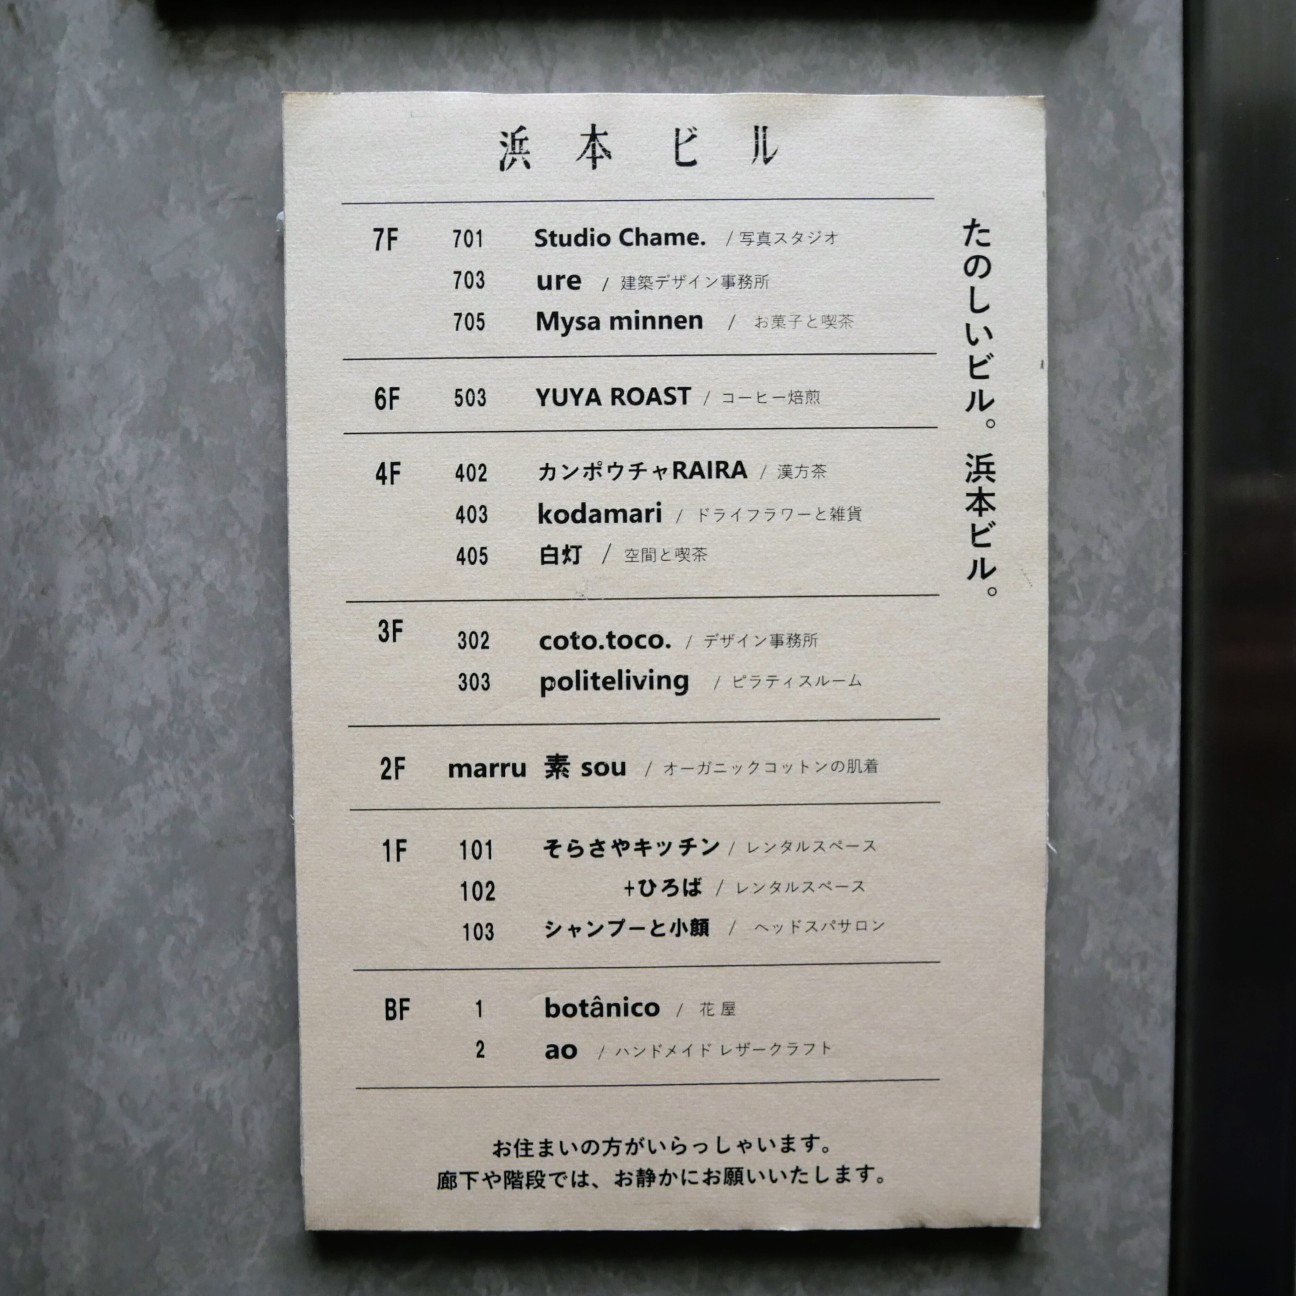 浜本ビル
7F 701 Studio Chame. / 写真スタジオ
703 ure / 建築デザイン事務所
705 Mysa minnen / お菓子と喫茶
6F 503 YUYA ROAST / コーヒー焙煎
4F 402 カンポウチャRAIRA / 漢方茶
403 kodamari / ドライフラワーと雑貨
405 白灯 / 空間と喫茶
3F 302 coto.toco. / デザイン事務所
303 politeliving / ピラティスルーム
2F marru 素 sou / オーガニックコットンの肌着
1F 101 そらさやキッチン / レンタルスペース
102 +ひろば / レンタルスペース
103 シャンプーと小顔 / ヘッドスパサロン
BF 1 botânico / 花屋
2 ao / ハンドメイド レザークラフト
お住まいの方がいらっしゃいます。
廊下や階段では、お静かにお願いいたします。
たのしいビル。浜本ビル。